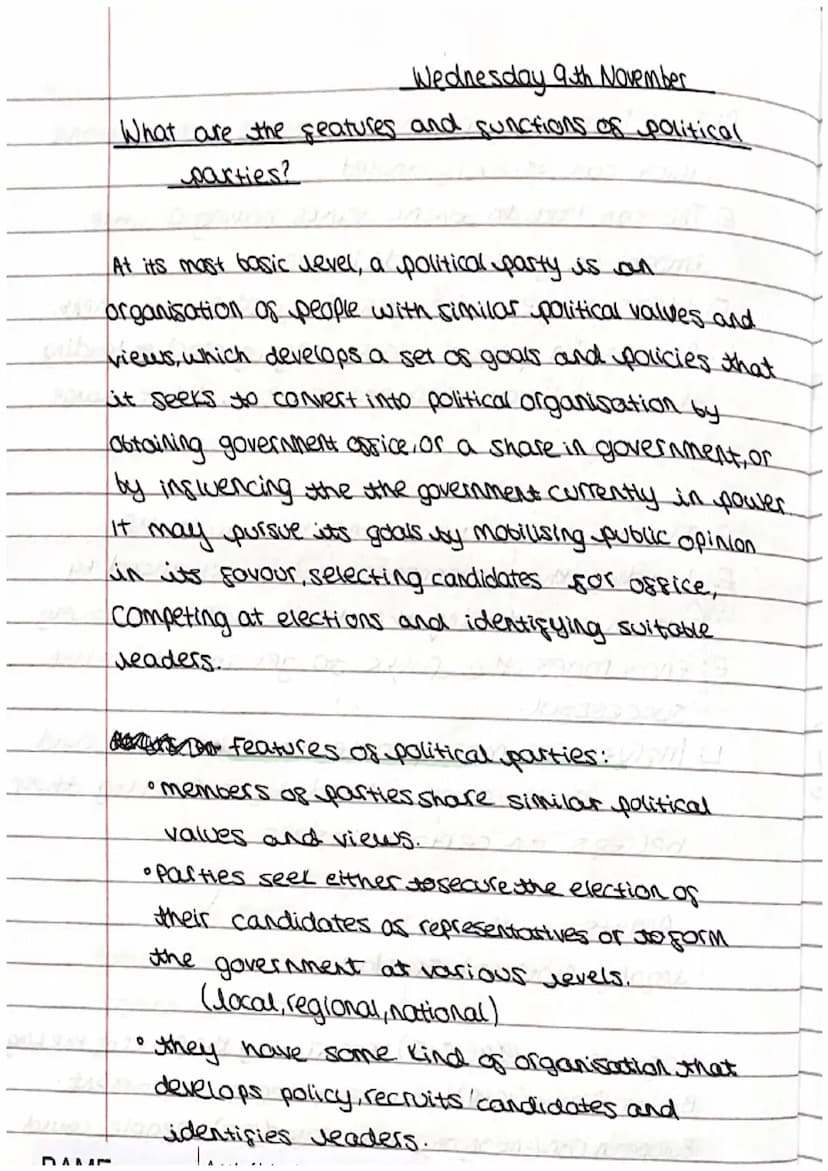 Wednesday 9th November
What are the features and functions of political
parties?
At its most basic level, a political party is an
organisation of people with similar political values and
views, which develops a set of goals and policies that
it seeks to convert into political organisation by
obtaining government office, or a share in government, or
by influencing the the government currently in power
It may pursue its goals by mobilising public opinion
in its favour, selecting candidates for office,
competing at elections and identifying suitable
leaders.
features of political parties:
• members of parties share similar political
values and views.
• Parties seek either to secure the election of
their candidates as representatives or to form
the government at various levels.
(local, regional, national)
• they have some kind of organisation that
develops policy, recruits candidates and
identifies leaders.